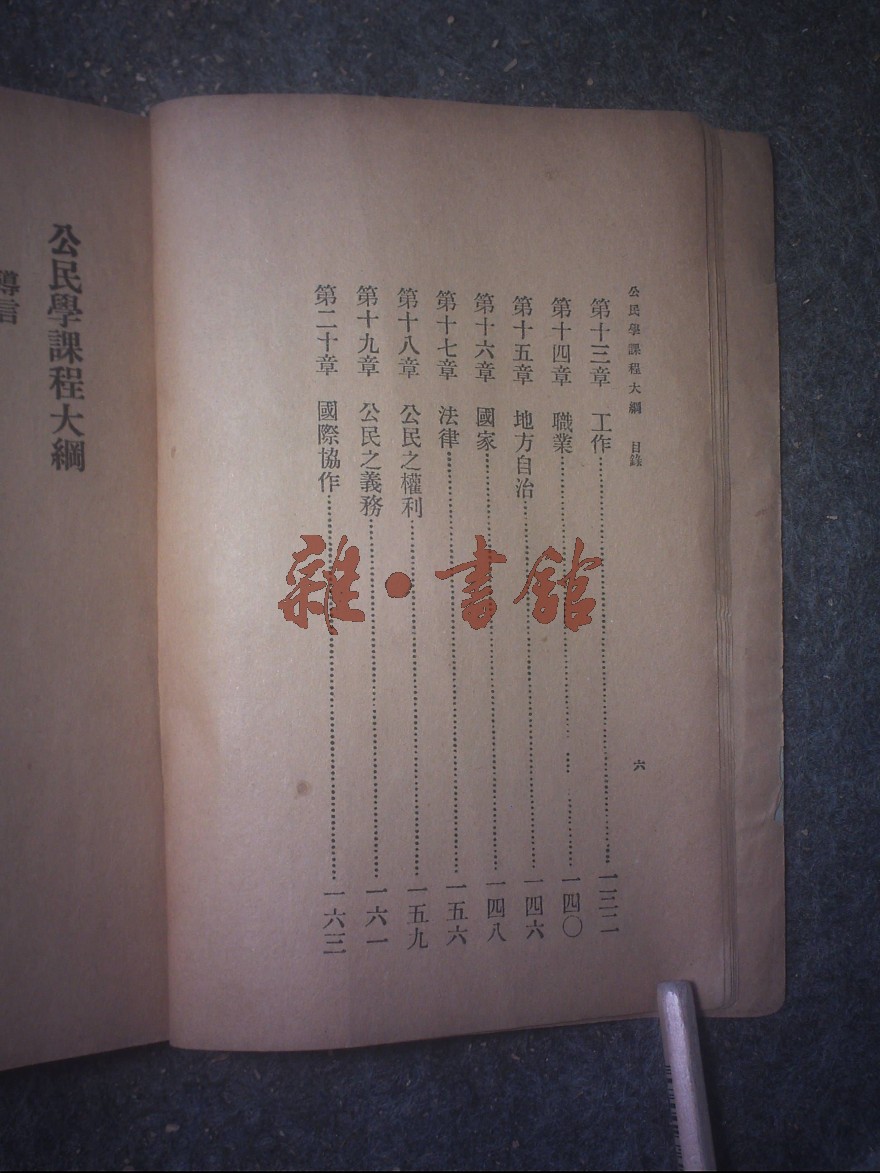 公民學課程大綱　目錄
六
第十三章　工作……一三二
第十四章　職業……一四〇
第十五章　地方自治……一四六
第十六章　國家……一四八
第十七章　法律……一五六
第十八章　公民之權利……一五九
第十九章　公民之義務……一六一
第二十章　國際協作……一六三
公民學課程大綱
導言
雜·書館